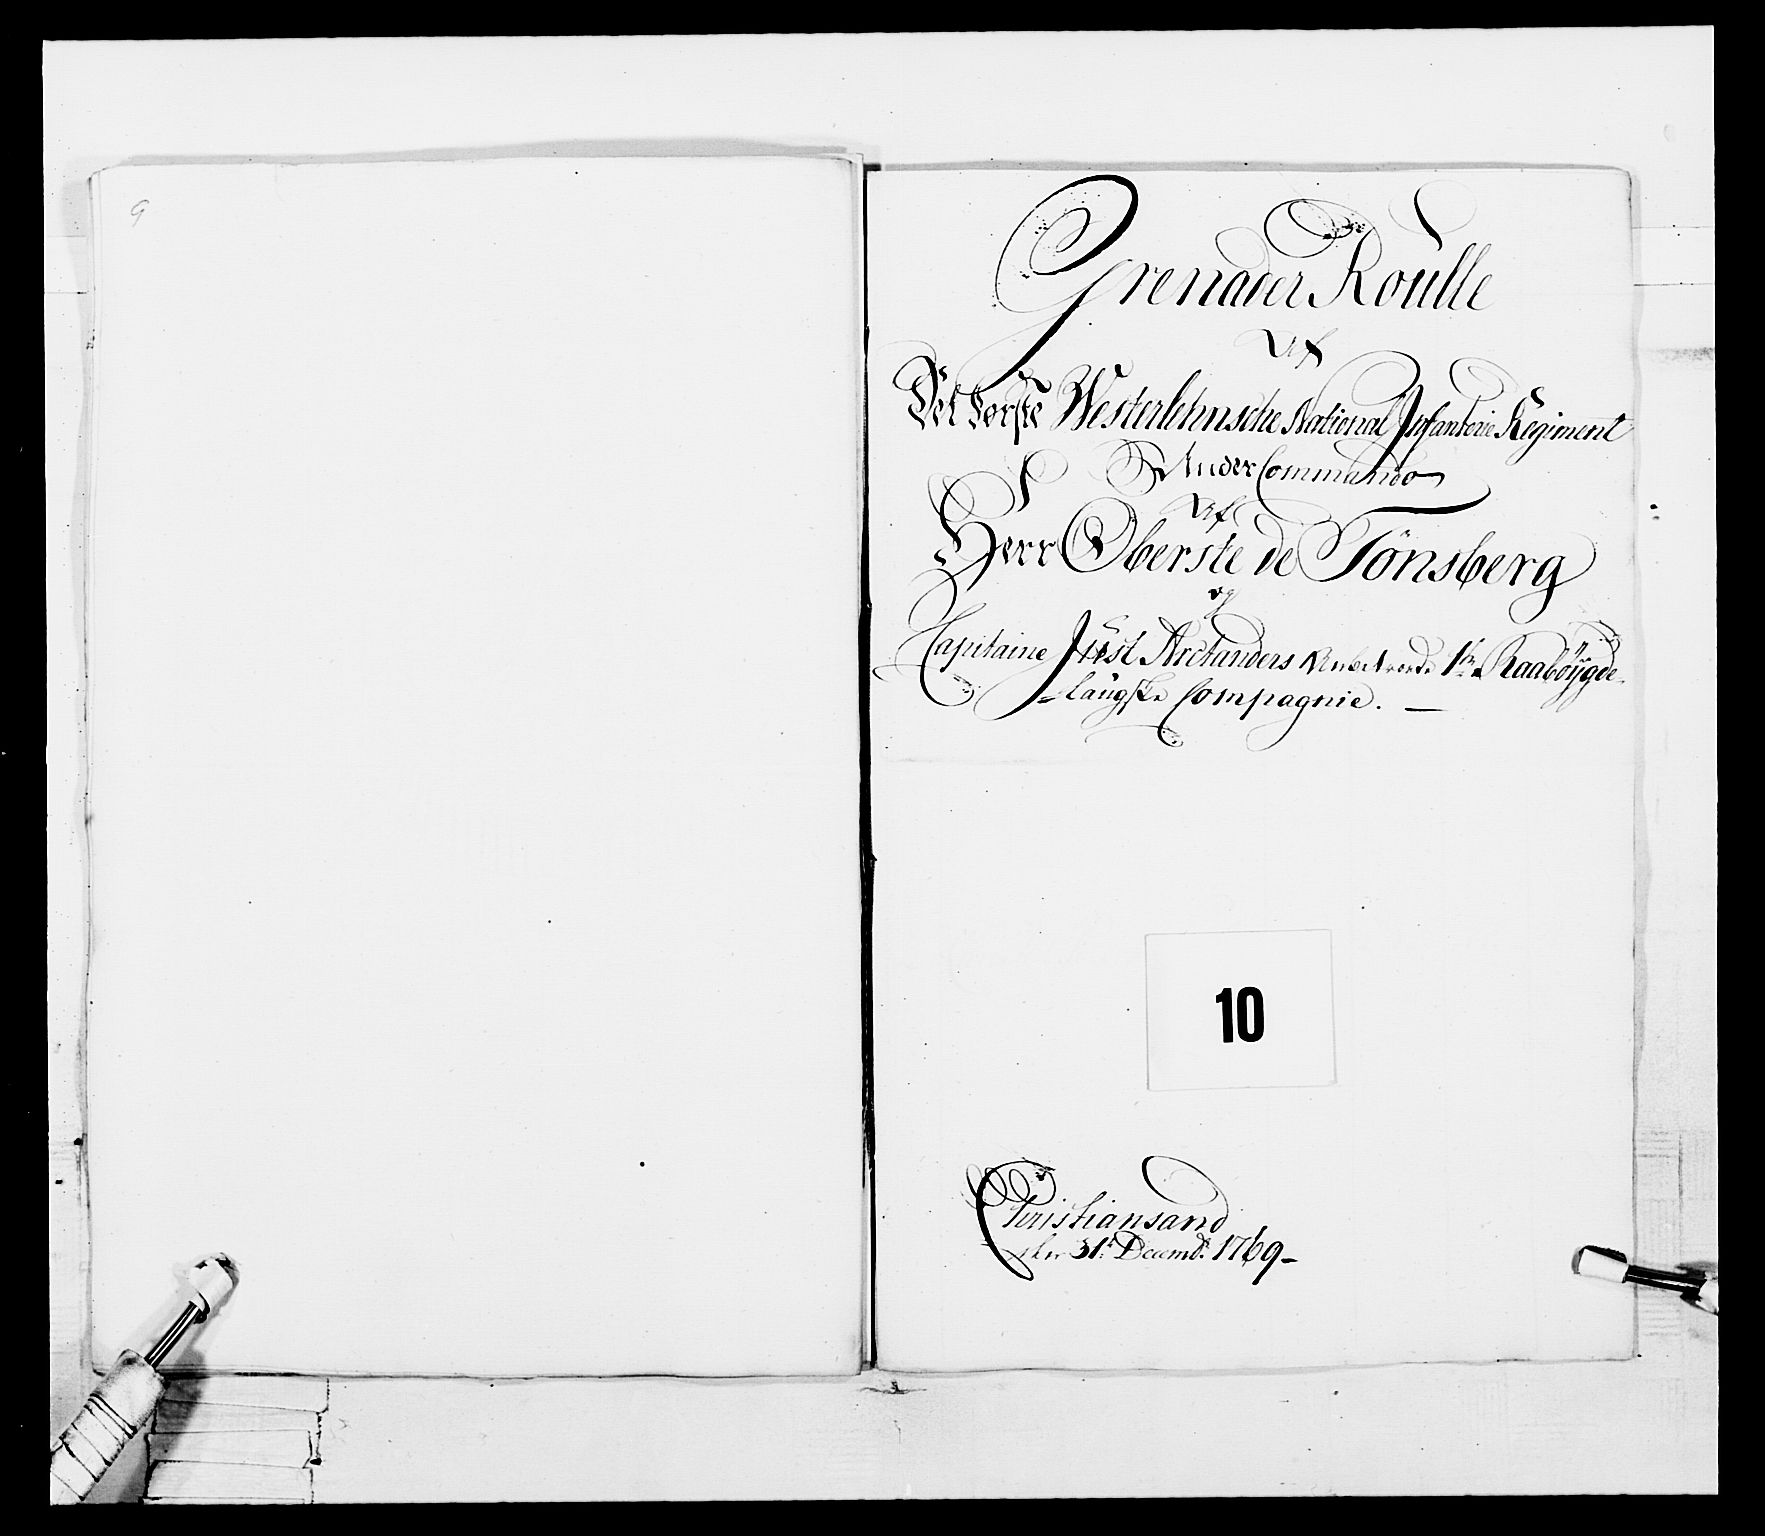 9
Grenader Roulle
Af
Det første Westerlehnsche National Infanterie Regiment
Under Commando
Af
Herr Oberste de Tönsberg
og
Capitaine Just Arctanders Anbetroede 1te Raabøÿgde-
-laugske Compagnie. —
10
Christiansand
den 31t Decemb. 1769-